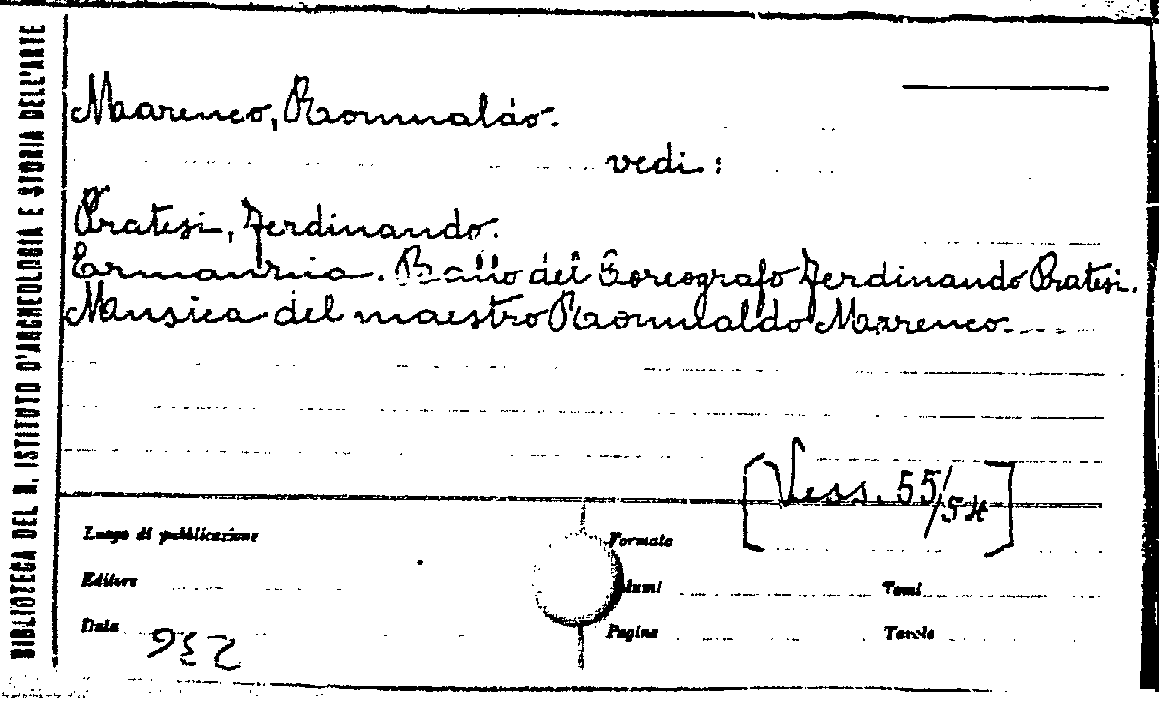 BIBLIOTECA DEL R. ISTITUTO D'ARCHEOLOGIA E STORIA DELL'ARTE
Marenco, Romualdo.
vedi:
Pratesi, Ferdinando.
Ermanzia. Ballo del Coreografo Ferdinando Pratesi.
Musica del maestro Romualdo Marenco.
[Vess. 55/54]
Luogo di pubblicazione
Formato
Editore
Tomi
Data
Pagine
Tavole